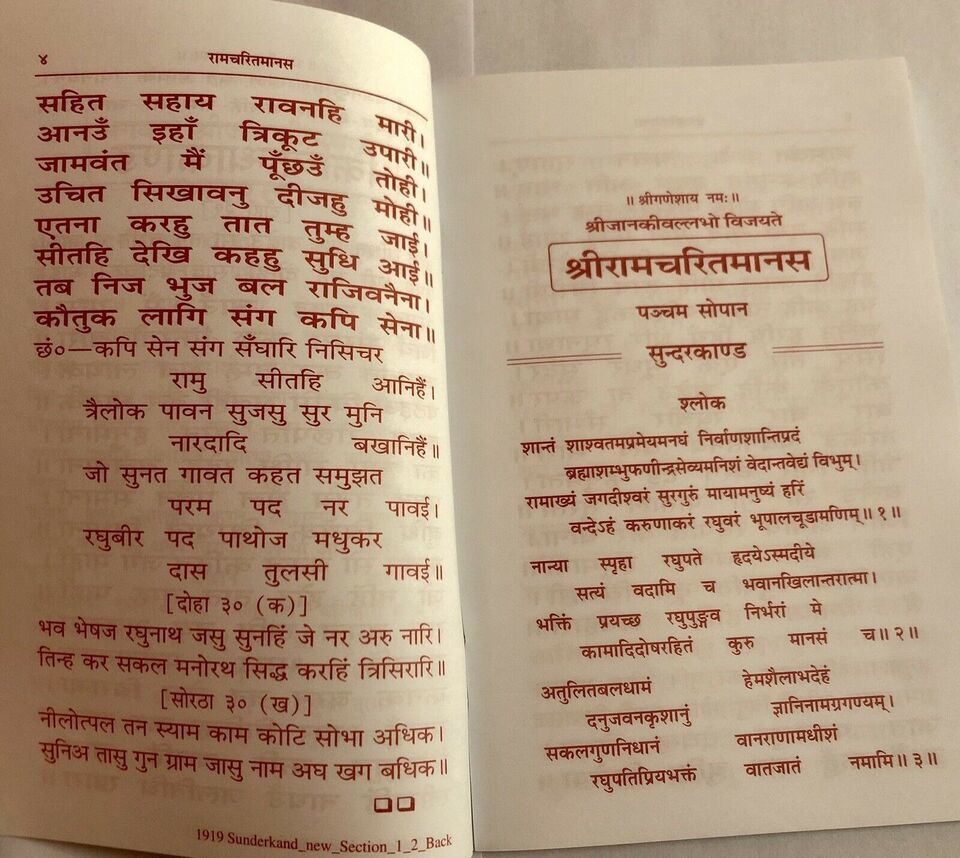 ४
रामचरितमानस
सहित सहाय रावनहि मारी।
आनउँ इहाँ त्रिकूट उपारी॥
जामवंत मैं पूँछउँ तोही।
उचित सिखावनु दीजहु मोही॥
एतना करहु तात तुम्ह जाई।
सीतहि देखि कहहु सुधि आई॥
तब निज भुज बल राजिवनैना।
कौतुक लागि संग कपि सेना॥
छं०—कपि सेन संग सँघारि निसिचर
रामु सीतहि आनिहैं।
त्रैलोक पावन सुजसु सुर मुनि
नारदादि बखानिहैं॥
जो सुनत गावत कहत समुझत
परम पद नर पावई।
रघुबीर पद पाथोज मधुकर
दास तुलसी गावई॥
[दोहा ३० (क)]
भव भेषज रघुनाथ जसु सुनहिं जे नर अरु नारि।
तिन्ह कर सकल मनोरथ सिद्ध करहिं त्रिसिरारि॥
[सोरठा ३० (ख)]
नीलोत्पल तन स्याम काम कोटि सोभा अधिक।
सुनिअ तासु गुन ग्राम जासु नाम अघ खग बधिक॥
1919 Sunderkand_new_Section_1_2_Back
॥ श्रीगणेशाय नमः॥
श्रीजानकीवल्लभो विजयते
श्रीरामचरितमानस
पञ्चम सोपान
सुन्दरकाण्ड
श्लोक
शान्तं शाश्वतमप्रमेयमनघं निर्वाणशान्तिप्रदं
ब्रह्माशम्भुफणीन्द्रसेव्यमनिशं वेदान्तवेद्यं विभुम्।
रामाख्यं जगदीश्वरं सुरगुरुं मायामनुष्यं हरिं
वन्देऽहं करुणाकरं रघुवरं भूपालचूडामणिम्॥१॥
नान्या स्पृहा रघुपते हृदयेऽस्मदीये
सत्यं वदामि च भवानखिलान्तरात्मा।
भक्तिं प्रयच्छ रघुपुङ्गव निर्भरां मे
कामादिदोषरहितं कुरु मानसं च॥२॥
अतुलितबलधामं हेमशैलाभदेहं
दनुजवनकृशानुं ज्ञानिनामग्रगण्यम्।
सकलगुणनिधानं वानराणामधीशं
रघुपतिप्रियभक्तं वातजातं नमामि॥३॥